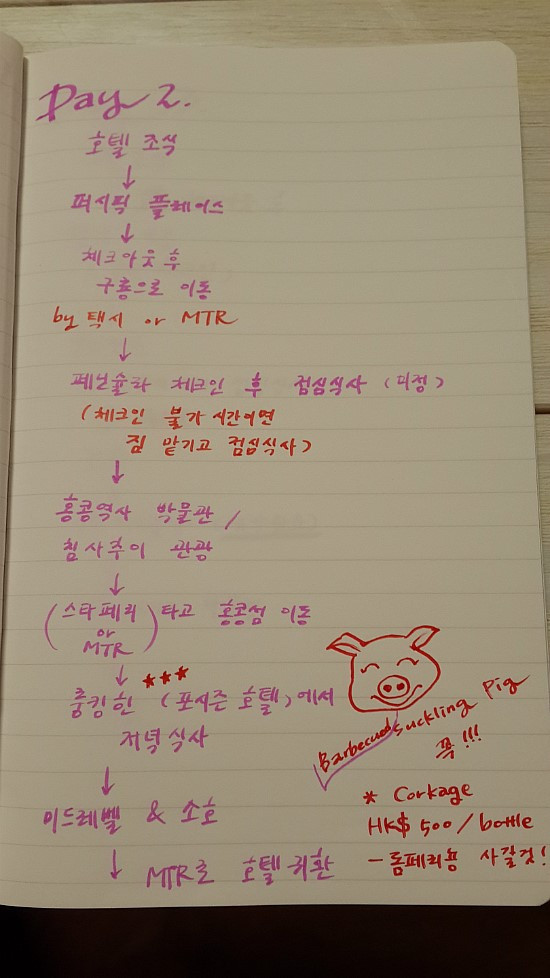 Day 2.
호텔 조식
↓
퍼시픽 플레이스
↓
체크아웃 후
구룡으로 이동
by 택시 or MTR
↓
페닌슐라 체크인 후 점심식사 (미정)
(체크인 불가 시간이면
짐 맡기고 점심식사)
↓
홍콩역사 박물관 /
침사추이 관광
↓
(스타페리 or MTR) 타고 홍콩섬 이동
↓ ***
룽킹힌 (포시즌 호텔)에서
저녁식사
Barbecued suckling Pig
꼭!!!
↓
미드레벨 & 소호
* Corkage
HK$ 500/bottle
- 돔페리뇽 사갈것!
↓ MTR로 호텔 귀환